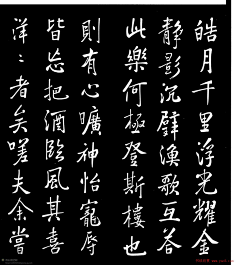 皓月千里浮光耀金
静影沉璧漁歌互答
此樂何極登斯樓也
則有心曠神怡寵辱
皆忘把酒臨風其喜
洋〻者矣嗟夫余當